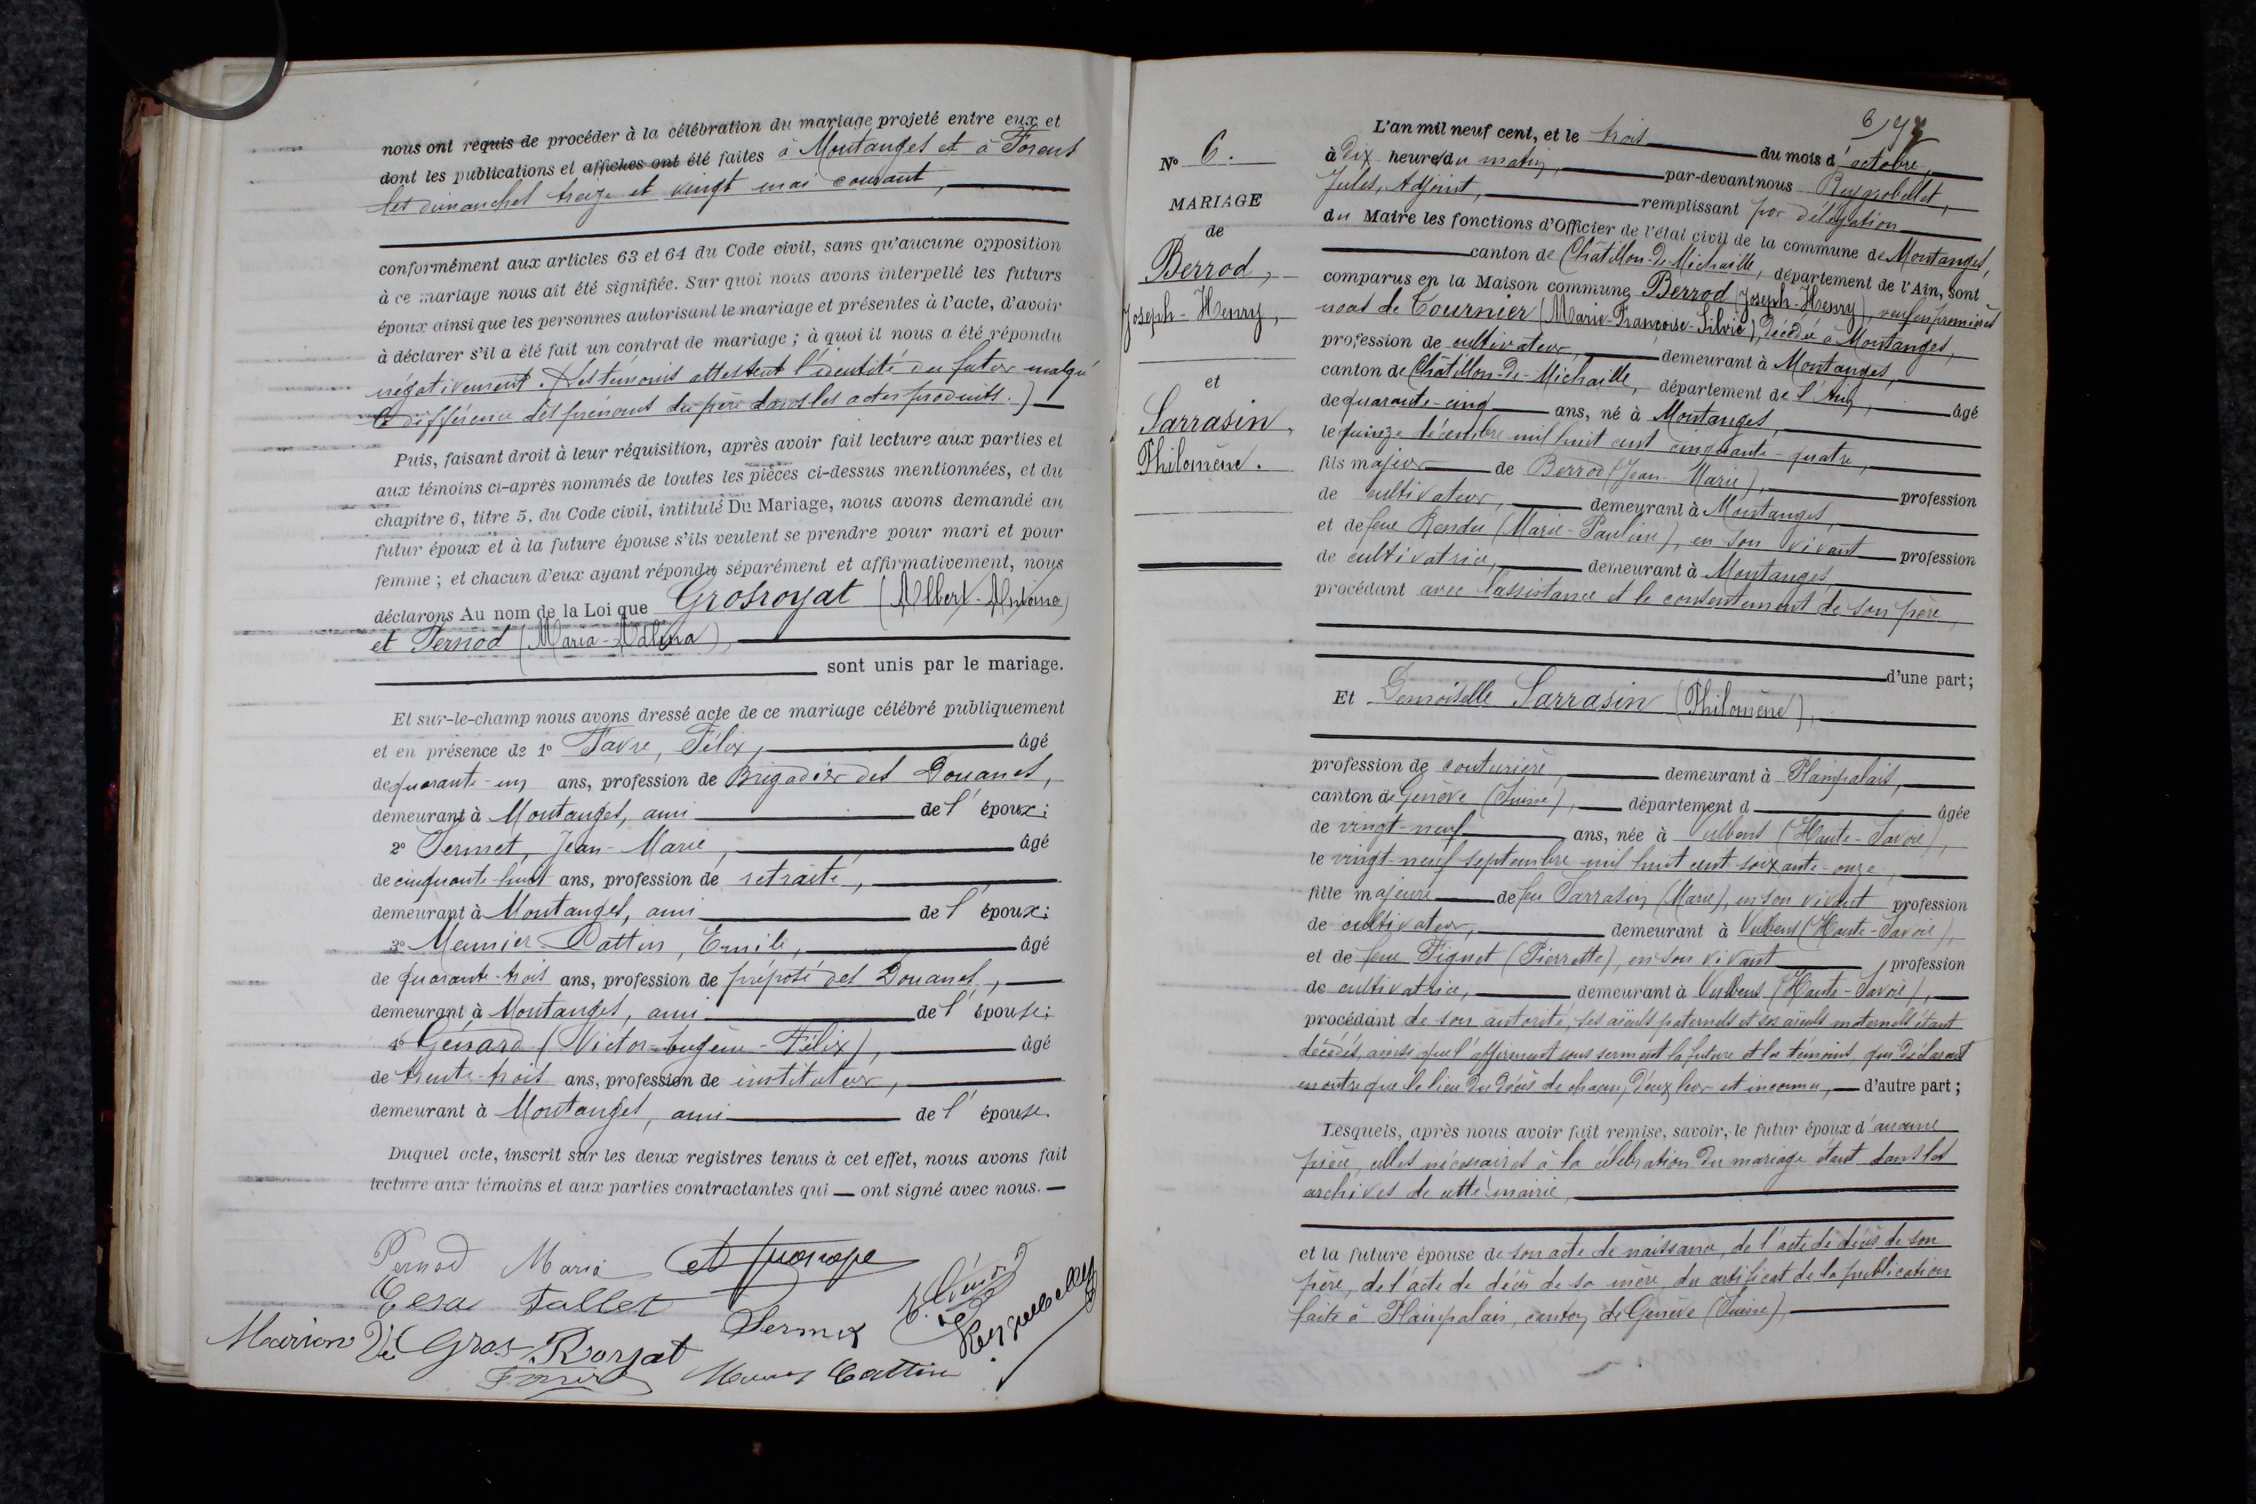 nous ont requis de procéder à la célébration du mariage projeté entre eux et
dont les publications et affiches ont été faites à Montanges et à Forens
les dimanches treize et vingt mai courant,
conformément aux articles 63 et 64 du Code civil, sans qu'aucune opposition
à ce mariage nous ait été signifiée. Sur quoi nous avons interpellé les futurs
époux ainsi que les personnes autorisant le mariage et présentes à l'acte, d'avoir
à déclarer s'il a été fait un contrat de mariage ; à quoi il nous a été répondu
négativement. (Les témoins attestent l'identité du futur malgré
la différence des prénoms du père dans les actes produits.)
Puis, faisant droit à leur réquisition, après avoir fait lecture aux parties et
aux témoins ci-après nommés de toutes les pièces ci-dessus mentionnées, et du
chapitre 6, titre 5, du Code civil, intitulé Du Mariage, nous avons demandé au
futur époux et à la future épouse s'ils veulent se prendre pour mari et pour
femme ; et chacun d'eux ayant répondu séparément et affirmativement, nous
déclarons Au nom de la Loi que Grosroyat (Albert-Antoine)
et Pernod (Maria-Adlina),
sont unis par le mariage.
Et sur-le-champ nous avons dressé acte de ce mariage célébré publiquement
et en présence de 1° Favre, Félix, âgé
de quarante-un ans, profession de Brigadier des Douanes,
demeurant à Montanges, ami de l'époux;
2° Sermet, Jean-Marie, âgé
de cinquante-huit ans, profession de retraité,
demeurant à Montanges, ami de l'époux;
3° Meunier-Cattin, Emile, âgé
de quarante-trois ans, profession de préposé des Douanes,
demeurant à Montanges, ami de l'épouse;
4° Génard (Victor-Eugène-Félix), âgé
de trente-trois ans, profession de instituteur,
demeurant à Montanges, ami de l'épouse.
Duquel acte, inscrit sur les deux registres tenus à cet effet, nous avons fait
lecture aux témoins et aux parties contractantes qui ont signé avec nous.
Pernod Maria
Tallet
Sermet
Marion Ve Gros-Royat
Cattin
6
N° 6.
MARIAGE
de
Berrod,
Joseph-Henry,
et
Sarrasin,
Philomène.
L'an mil neuf cent, et le trois du mois d'octobre,
à Dix heures du matin, par-devant nous Reygrobellet,
Jules, Adjoint, remplissant par délégation
du Maire les fonctions d'Officier de l'état civil de la commune de Montanges,
canton de Châtillon-de-Michaille, département de l'Ain, sont
comparus en la Maison commune Berrod (Joseph-Henry), veuf en premières
noces de Tournier (Marie-Françoise-Silvie), décédée à Montanges,
profession de cultivateur, demeurant à Montanges,
canton de Châtillon-de-Michaille, département de l'Ain, âgé
de quarante-cinq ans, né à Montanges,
le quinze décembre mil huit cent cinquante-quatre,
fils majeur de Berrod (Jean-Marie), profession
de cultivateur, demeurant à Montanges,
et de feue Rendu (Marie-Pauline), en son vivant profession
de cultivatrice, demeurant à Montanges,
procédant avec l'assistance et le consentement de son père,
d'une part;
Et Demoiselle Sarrasin (Philomène),
profession de couturière, demeurant à Plainpalais,
canton de Genève (Suisse), département d âgée
de vingt-neuf ans, née à Vulbens (Haute-Savoie),
le vingt-neuf septembre mil huit cent soixante-onze,
fille majeure de feu Sarrasin (Marie), en son vivant profession
de cultivateur, demeurant à Vulbens (Haute-Savoie),
et de feue Piguet (Pierrette), en son vivant profession
de cultivatrice, demeurant à Vulbens (Haute-Savoie),
procédant de son autorité, ses aïeuls paternels et ses aïeuls maternels étant
décédés, ainsi que l'affirment sous serment la future et les témoins, qui déclarent
en outre que le lieu du décès de chacun d'eux leur est inconnu, d'autre part;
Lesquels, après nous avoir fait remise, savoir, le futur époux d'aucune
pièce, celles nécessaires à la célébration du mariage étant dans les
archives de cette mairie,
et la future épouse de son acte de naissance, de l'acte de décès de son
père, de l'acte de décès de sa mère, du certificat de la publication
faite à Plainpalais, canton de Genève (Suisse),